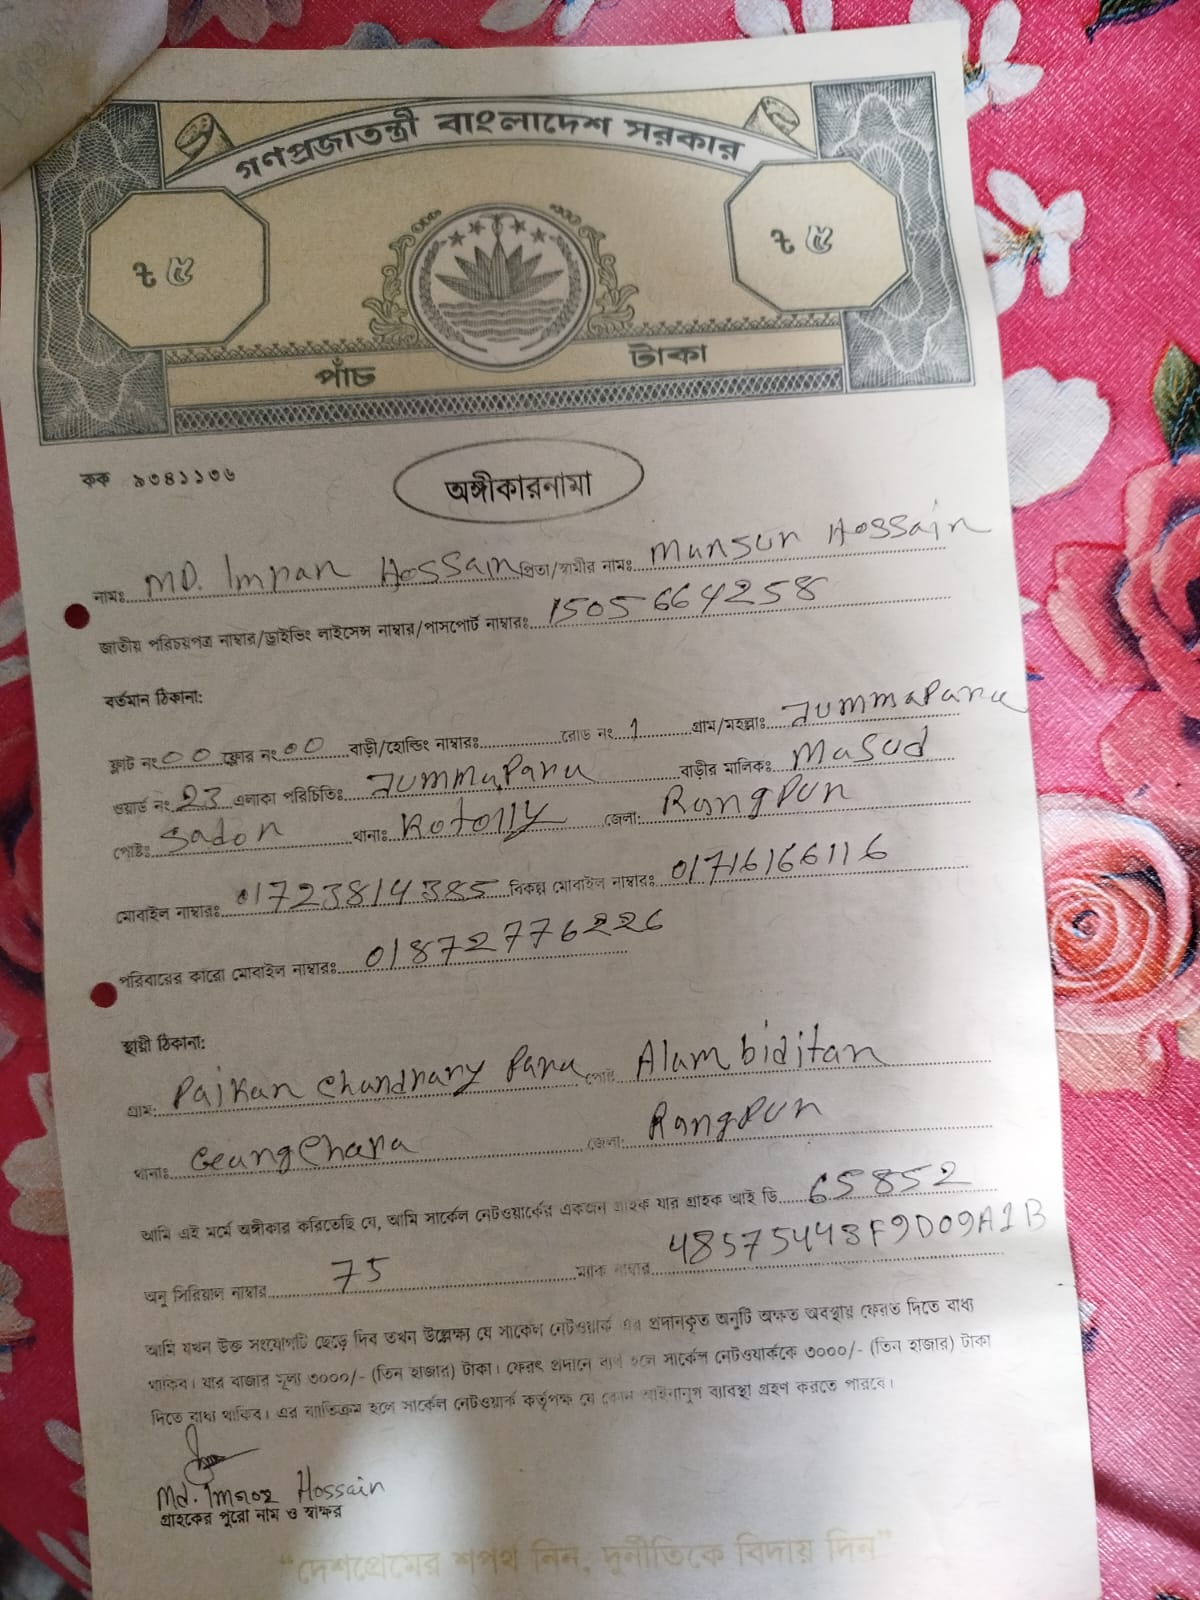 গণপ্রজাতন্ত্রী বাংলাদেশ সরকার
৳ ৫
৳ ৫
পাঁচ টাকা
কক ৯৩৪১১৩৬
অঙ্গীকারনামা
নামঃ MD. Imran Hossain পিতা/স্বামীর নামঃ Munsur Hossain
জাতীয় পরিচয়পত্র নাম্বার/ড্রাইভিং লাইসেন্স নাম্বার/পাসপোর্ট নাম্বারঃ 1505664258
বর্তমান ঠিকানা:
ফ্লাট নং 00 ফ্লোর নং 00 বাড়ী/হোল্ডিং নাম্বারঃ রোড নং 1 গ্রাম/মহল্লাঃ JummaPara
ওয়ার্ড নং 23 এলাকা পরিচিতিঃ JummaPara বাড়ীর মালিকঃ Masud
পোষ্টঃ Sador থানাঃ Kotolly জেলা: RangPur
মোবাইল নাম্বারঃ 01723814385 বিকল্প মোবাইল নাম্বারঃ 01716166116
পরিবারের কারো মোবাইল নাম্বারঃ 01872776226
স্থায়ী ঠিকানা:
গ্রাম: Paikan Para পোষ্ট Alam biditar
থানাঃ GangChara জেলা: RangPur
আমি এই মর্মে অঙ্গীকার করিতেছি যে, আমি সার্কেল নেটওয়ার্কের একজন গ্রাহক যার গ্রাহক আই ডি 65852
অনু সিরিয়াল নাম্বার 75 ম্যাক নাম্বার 48575443F9D09A1B
আমি যখন উক্ত সংযোগটি ছেড়ে দিব তখন উল্লেক্ষ্য যে সার্কেল নেটওয়ার্ক এর প্রদানকৃত অনুটি অক্ষত অবস্থায় ফেরত দিতে বাধ্য
থাকিব। যার বাজার মূল্য ৩০০০/- (তিন হাজার) টাকা। ফেরৎ প্রদানে ব্যর্থ হলে সার্কেল নেটওয়ার্ককে ৩০০০/- (তিন হাজার) টাকা
দিতে বাধ্য থাকিব। এর ব্যতিক্রম হলে সার্কেল নেটওয়ার্ক কর্তৃপক্ষ যে কোন আইনানুগ ব্যাবস্থা গ্রহণ করতে পারবে।
Md. Hossain
গ্রাহকের পুরো নাম ও স্বাক্ষর
“দেশপ্রেমের শপথ নিন, দুর্নীতিকে বিদায় দিন”